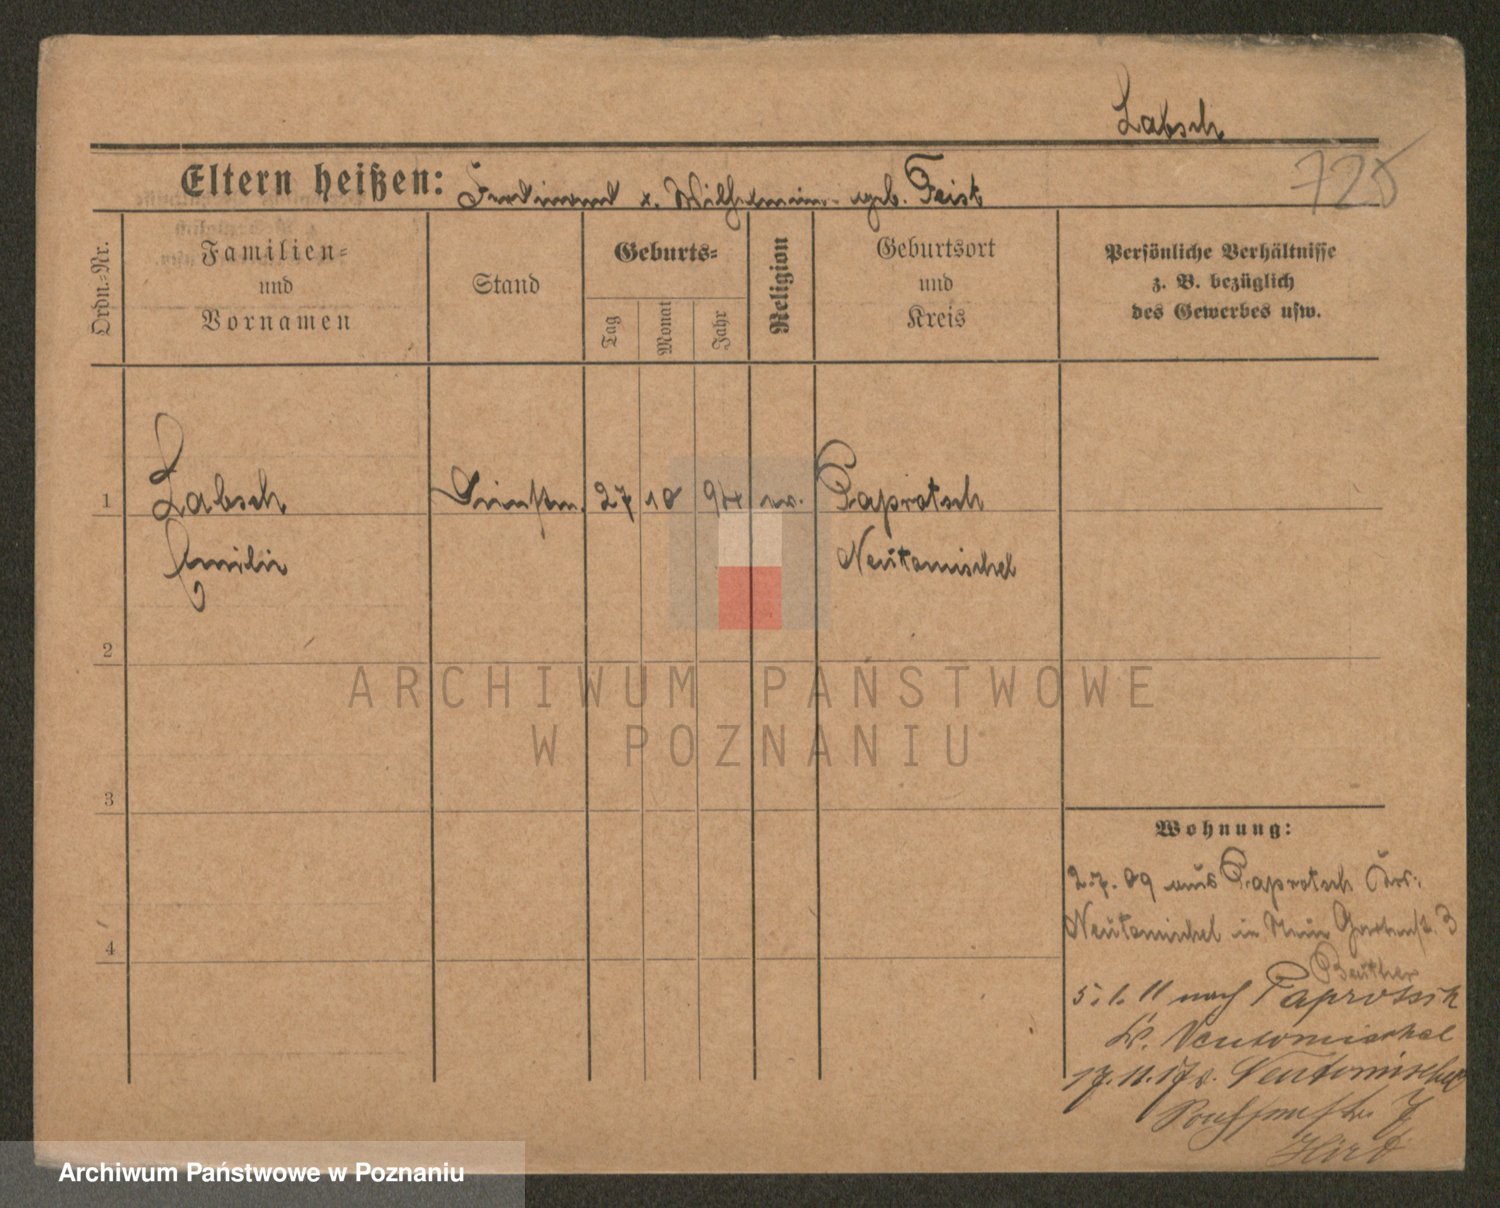 Labsch
Eltern heißen: Ferdinand u. Wilhelmine geb. Feist
728
Ordn.-Nr.
Familien-
und
Vornamen
Stand
Geburts-
Tag
Monat
Jahr
Religion
Geburtsort
und
Kreis
Persönliche Verhältnisse
z. B. bezüglich
des Gewerbes usw.
1 Labsch 27 10 94 ev. Paprotsch
Emilie Neutomischel
2
3
4
Wohnung:
2.7.09 aus Paprotsch Krs.
Neutomischel in Neue Gartenstr. 3
Beuther
5.1.11 nach Paprotsch
Kr. Neutomischel
17.11.17 v. Neutomischel
7
Hirt
ARCHIWUM PAŃSTWOWE
W POZNANIU
Archiwum Państwowe w Poznaniu